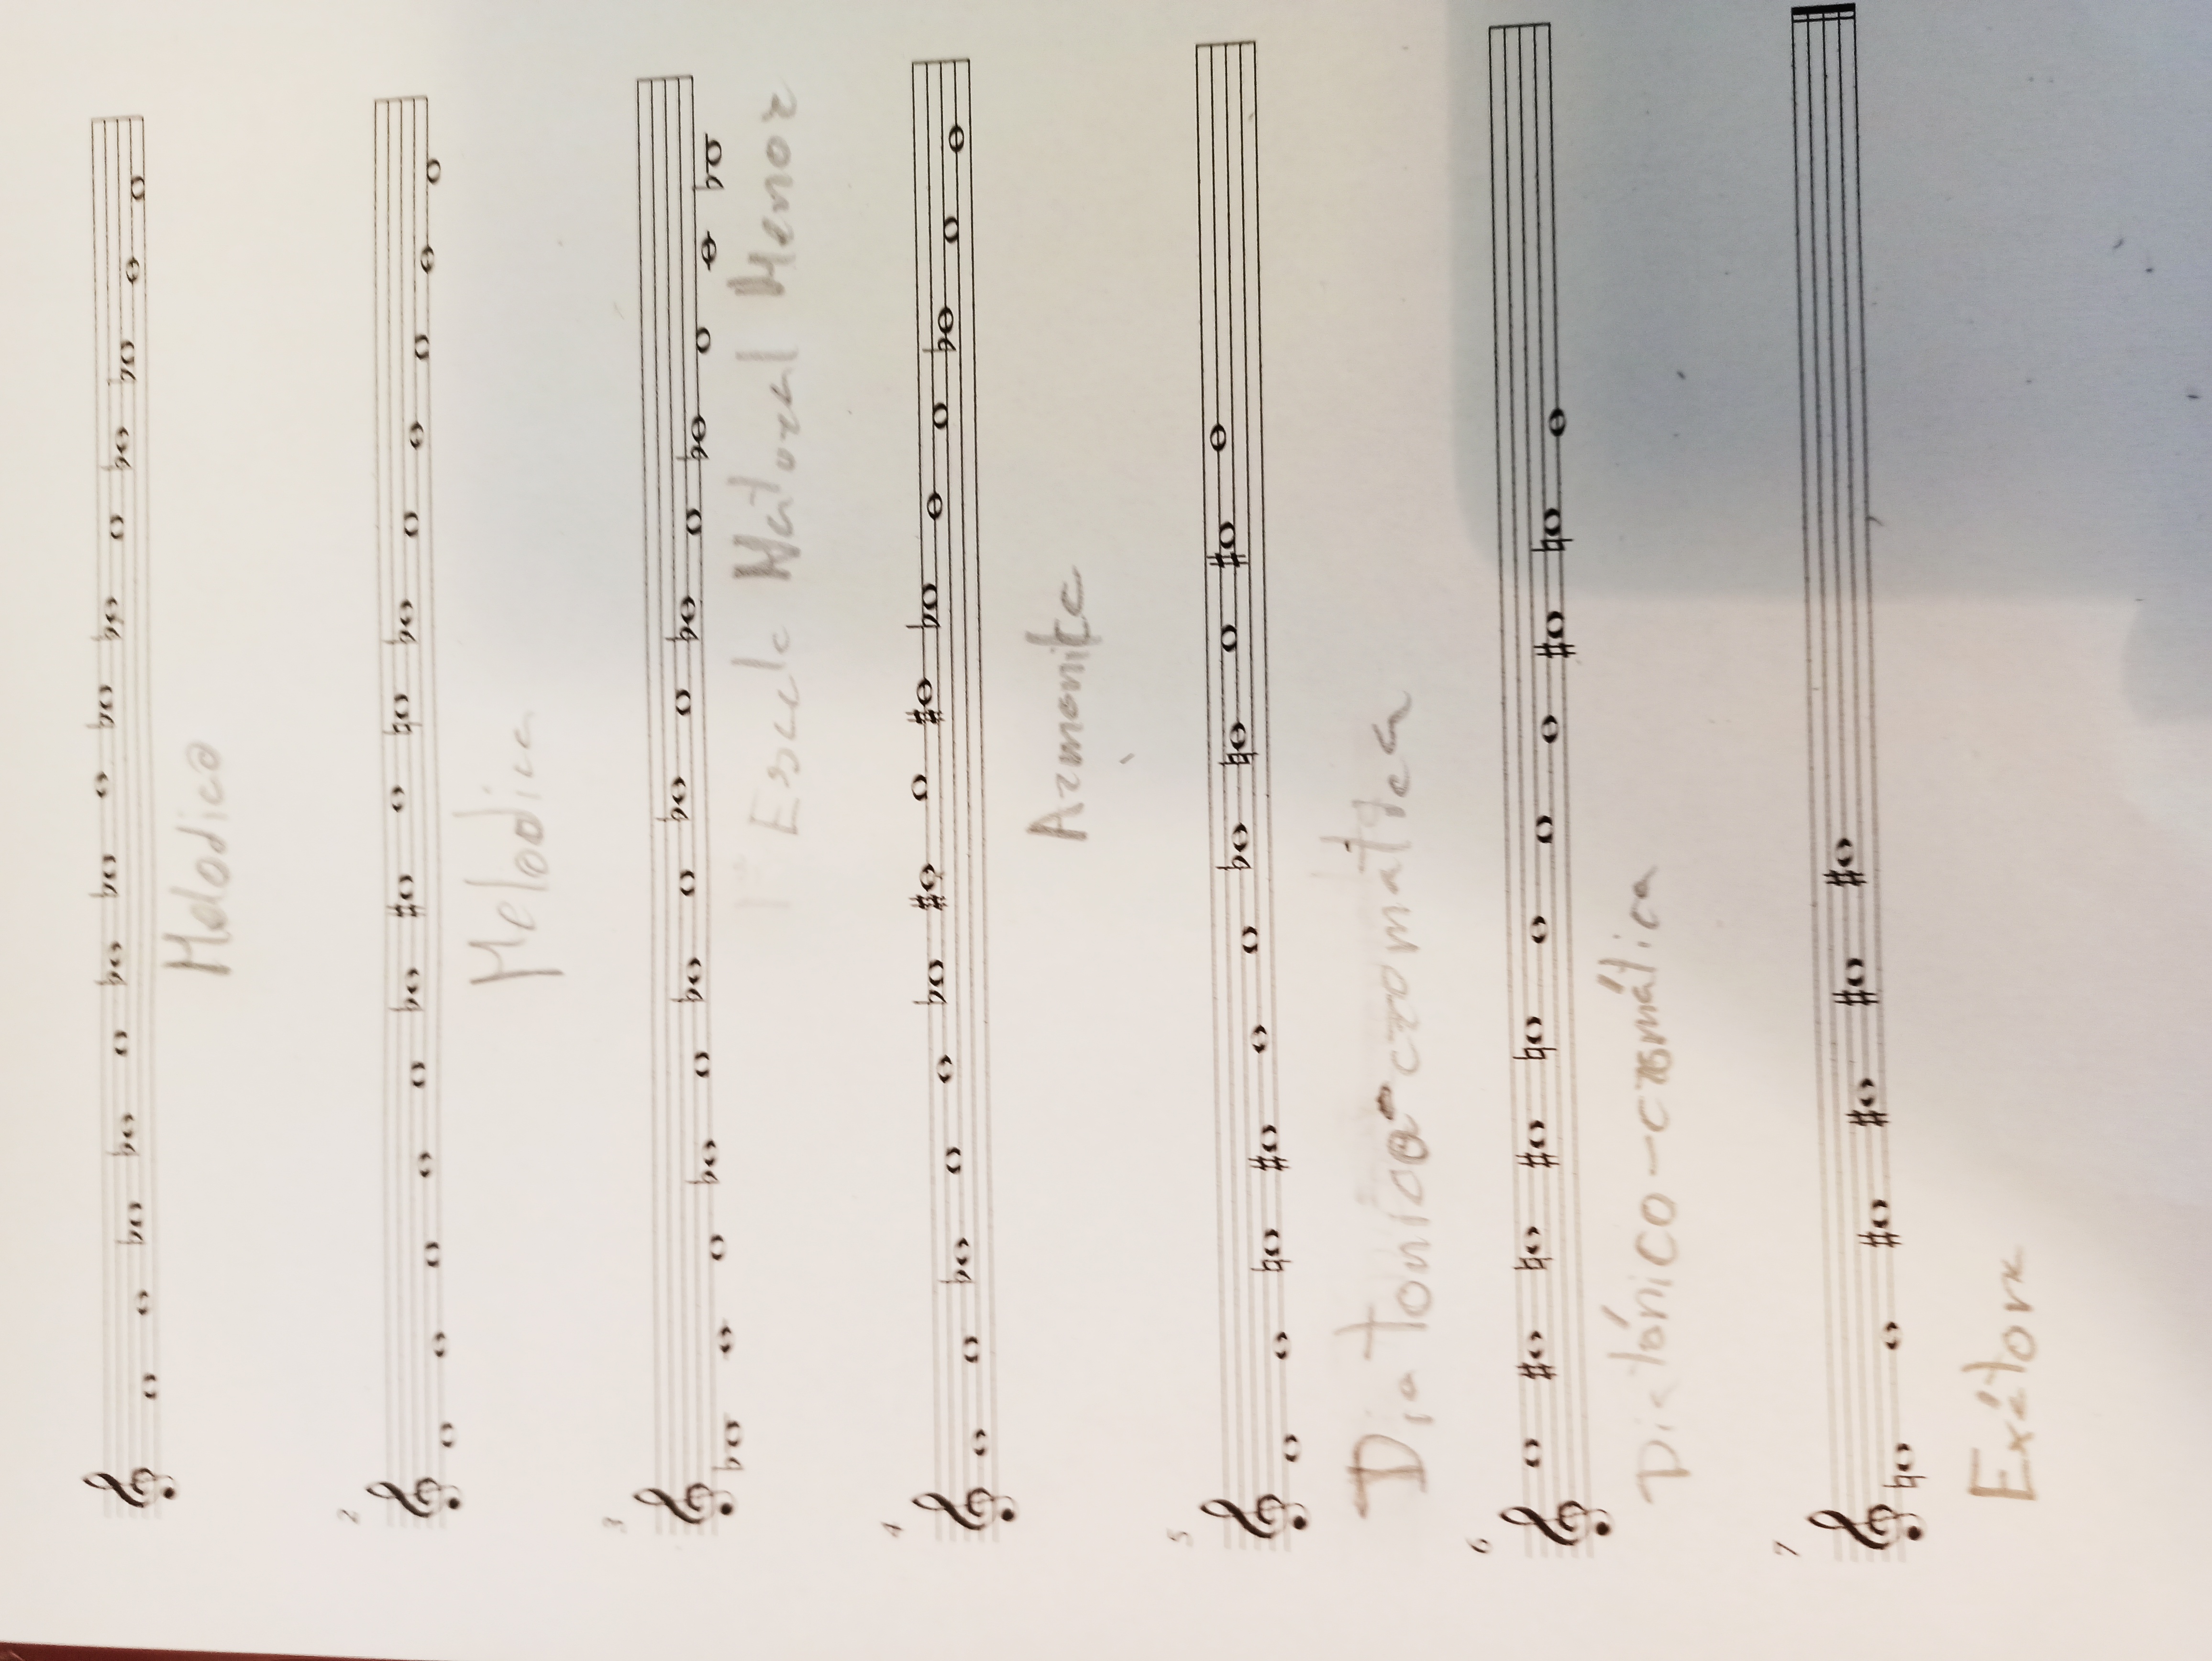 Melodica
2
Melodica
3
Escala Natural Menor
4
Armonica
5
6
Diatónico-cromática
7
Exátona